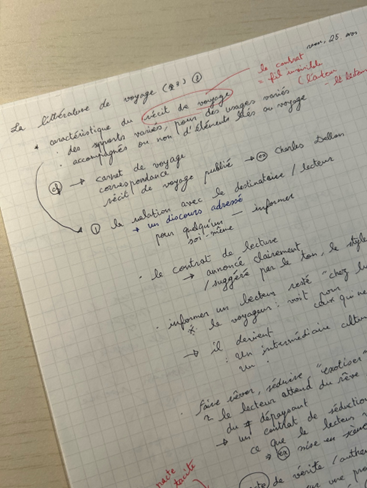 ven. 25 nov.
La littérature de voyage (XX) ①
le contrat
= fil invisible
(l'auteur
- le lecteur
caractéristique du récit de voyage
: des apports variés, pour des usages variés
: accompagnés ou non d'éléments liés au voyage
cf → carnet de voyage
correspondance
récit de voyage publié → ex Charles Dellon
① la relation avec le destinataire / lecteur
→ un discours adressé
pour quelqu'un — informer
soi-même
• le contrat de lecture
→ annoncé clairement,
/ suggéré par le ton, le style
• informer un lecteur resté "chez lui"
le voyageur : voit pour
ceux qui ne
→ il devient
: un intermédiaire cultu
: un
faire rêver, séduire, "exotiser"
le lecteur attend du rêve
du ≠ dépaysant
→ un contrat de séduction
ce que le lecteur
→ ex mise en scène
pacte
tacite
de vérité / authen